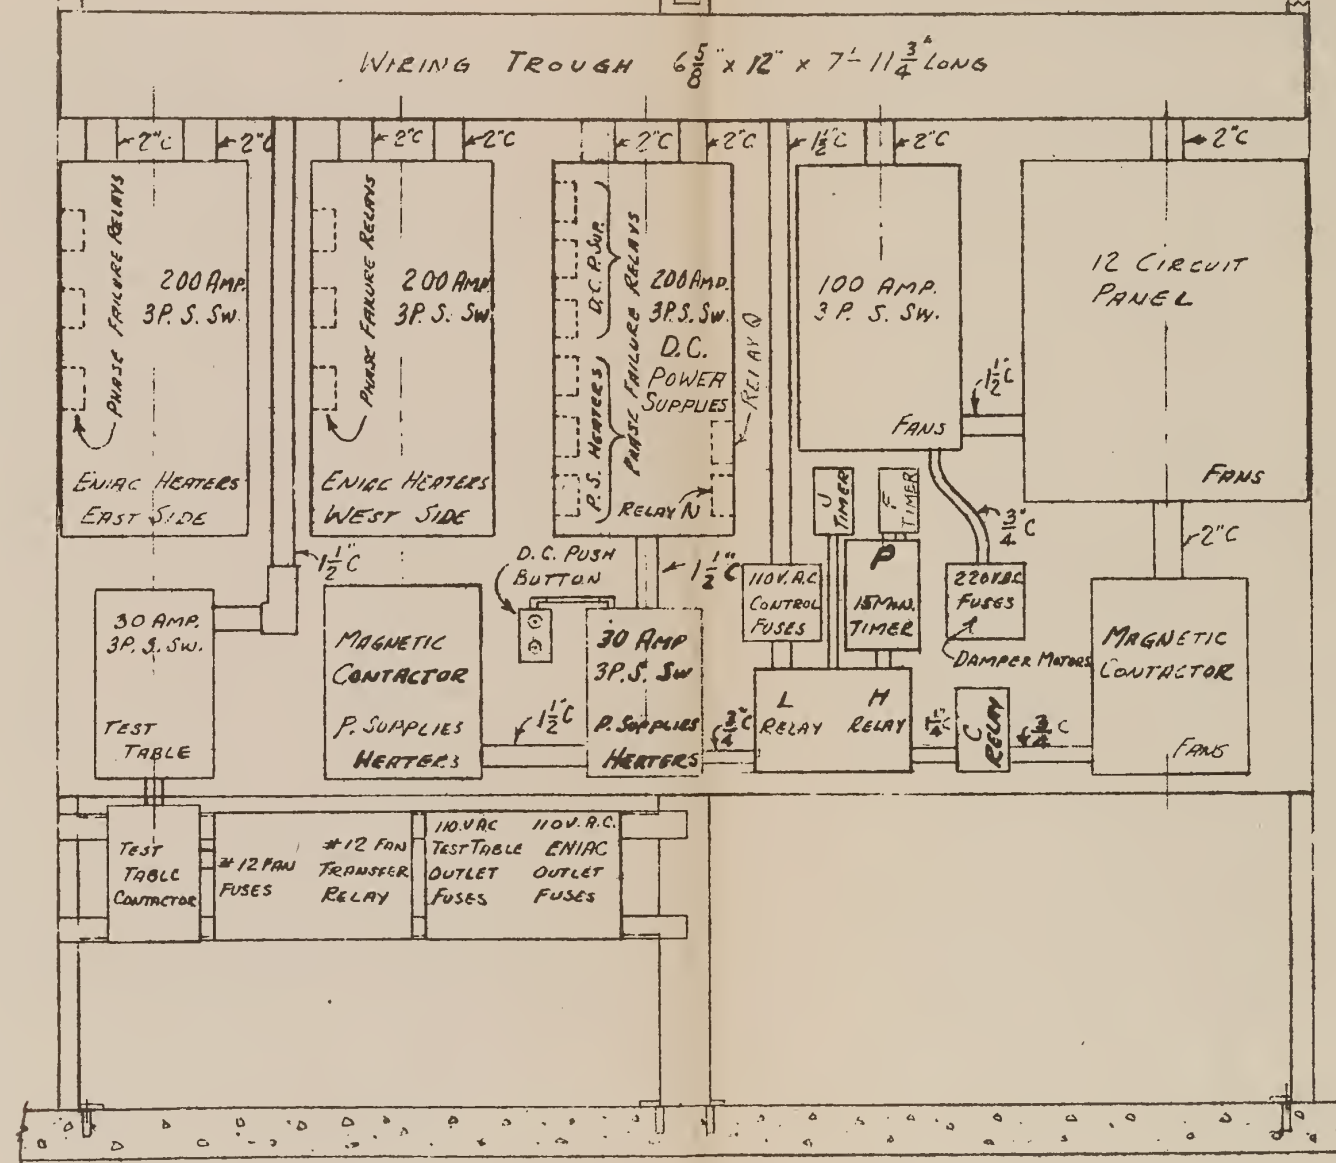 WIRING TROUGH 6 5/8" x 12" x 7'- 11 3/4" LONG
2"C
2"C
2"C
2"C
2"C
2"C
1 1/2"C
2"C
2"C
PHASE FAILURE RELAYS
200 AMP.
3P. S. SW.
ENIAC HEATERS
EAST SIDE
PHASE FAILURE RELAYS
200 AMP
3P. S. SW.
ENIAC HEATERS
WEST SIDE
D.C. P. SUP.
P.S. HEATERS
PHASE FAILURE RELAYS
200 AMP.
3P. S. SW.
D.C.
POWER
SUPPLIES
RELAY N
RELAY Q
100 AMP.
3 P. S. SW.
FANS
1 1/2"C
12 CIRCUIT
PANEL
FANS
1 1/2"C
D.C. PUSH
BUTTON
1 1/2"C
J
TIMER
F
TIMER
3/4"C
2"C
30 AMP.
3P. S. SW.
TEST
TABLE
MAGNETIC
CONTACTOR
P. SUPPLIES
HEATERS
1 1/2"C
30 AMP
3P. S. SW
P. SUPPLIES
HEATERS
3/4"C
110 V. A.C.
CONTROL
FUSES
P
15 MIN.
TIMER
220 V. A.C.
FUSES
DAMPER MOTORS
L
RELAY
H
RELAY
C
RELAY
3/4"C
MAGNETIC
CONTACTOR
FANS
TEST
TABLE
CONTACTOR
#12 FAN
FUSES
#12 FAN
TRANSFER
RELAY
110 V. AC
TEST TABLE
OUTLET
FUSES
110 V. A.C.
ENIAC
OUTLET
FUSES